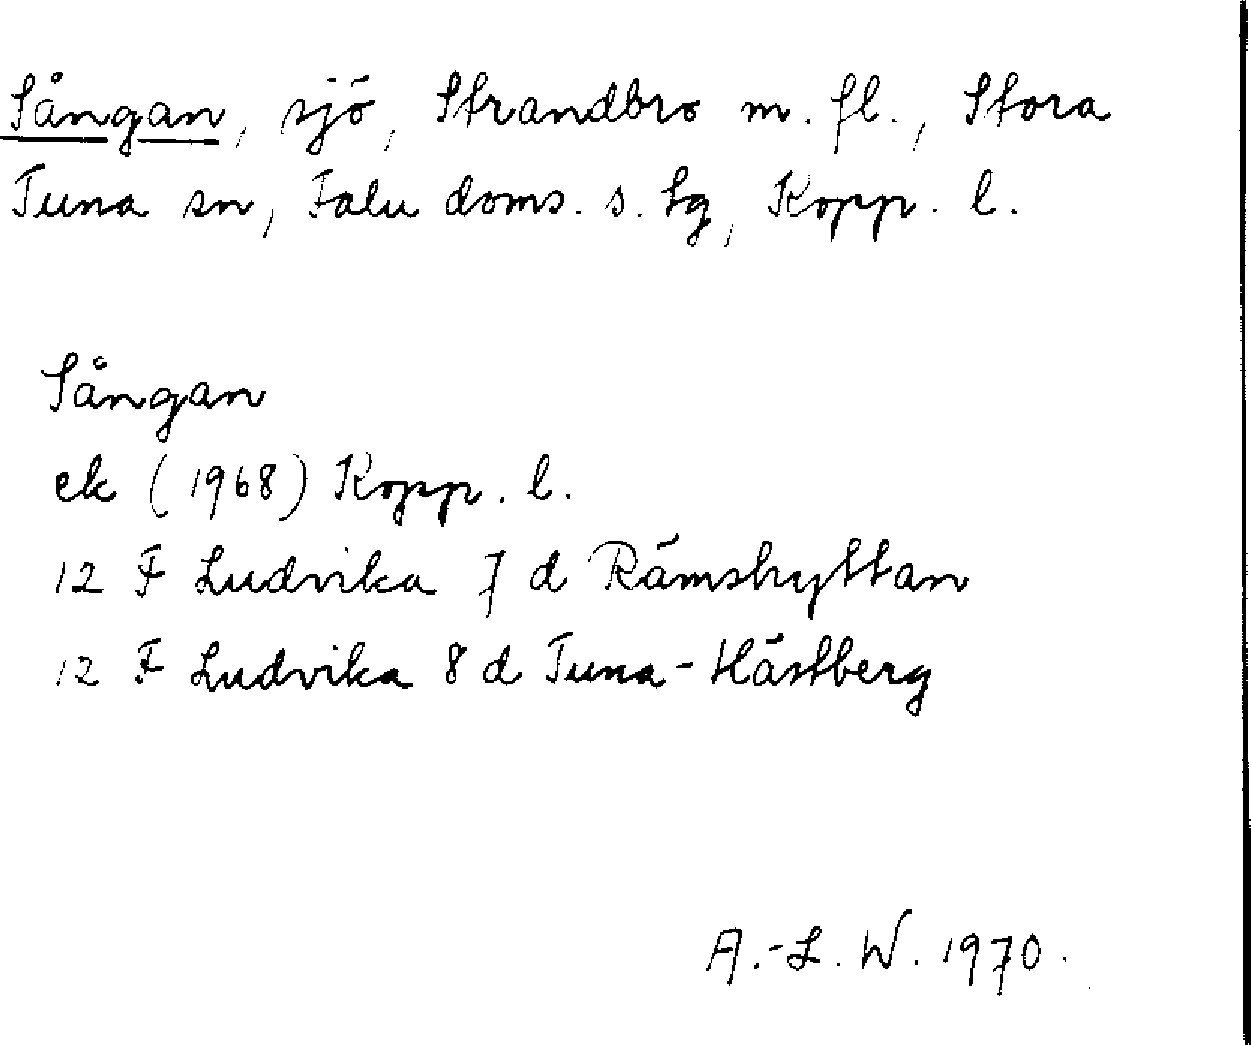 Sångan, sjö, Strandbro m. fl., Stora
Tuna sn, Falu doms. s. tg, Kopp. l.
Sångan
ek (1968) Kopp. l.
12 F Ludvika 7 d Rämshyttan
12 F Ludvika 8 d Tuna-Hästberg
A.-L. W. 1970.